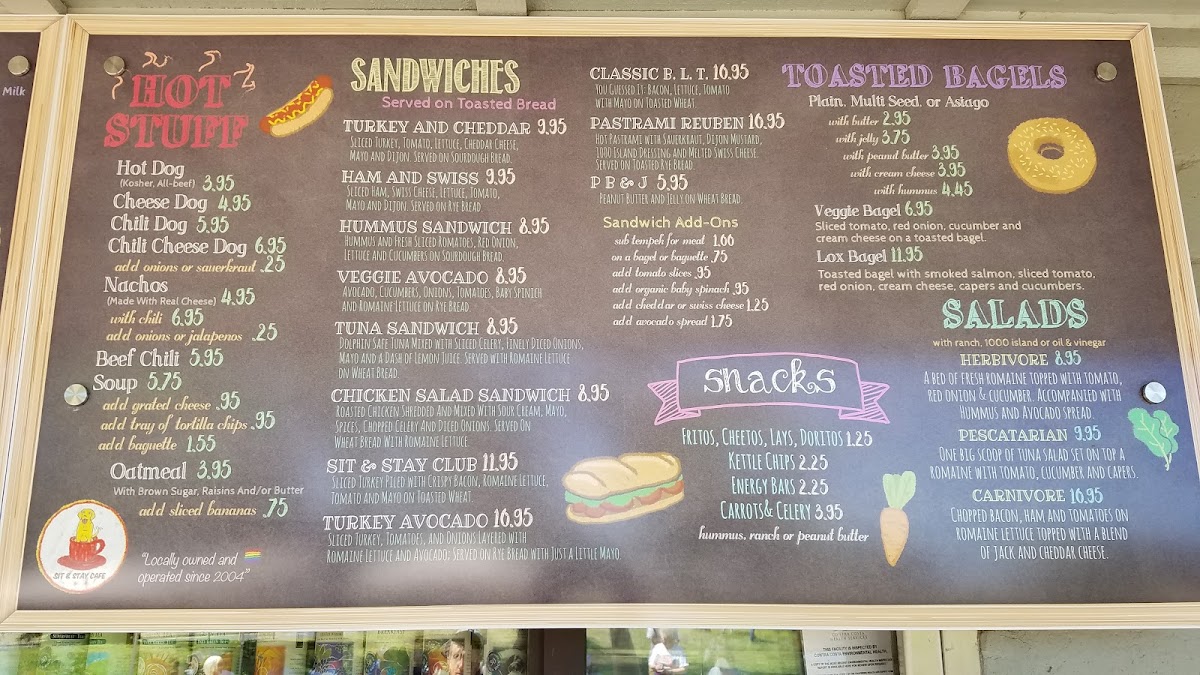 Milk
HOT
STUFF
Hot Dog
(Kosher, All-beef) 3.95
Cheese Dog 4.95
Chili Dog 5.95
Chili Cheese Dog 6.95
add onions or sauerkraut .25
Nachos
(Made With Real Cheese) 4.95
with chili 6.95
add onions or jalapenos .25
Beef Chili 5.95
Soup 5.75
add grated cheese .95
add tray of tortilla chips .95
add baguette 1.55
Oatmeal 3.95
With Brown Sugar, Raisins And/or Butter
add sliced bananas .75
SIT & STAY CAFE
"Locally owned and
operated since 2004"
SANDWICHES
Served on Toasted Bread
TURKEY AND CHEDDAR 9.95
Sliced Turkey, Tomato, Lettuce, Cheddar Cheese,
Mayo and Dijon. Served on Sourdough Bread.
HAM AND SWISS 9.95
Sliced Ham, Swiss Cheese, Lettuce, Tomato,
Mayo and Dijon. Served on Rye Bread.
HUMMUS SANDWICH 8.95
Hummus and Fresh Sliced Romatoes, Red Onion,
Lettuce and Cucumbers on Sourdough Bread.
VEGGIE AVOCADO 8.95
Avocado, Cucumbers, Onions, Tomatoes, Baby Spinich
and Romaine Lettuce on Rye Bread.
TUNA SANDWICH 8.95
Dolphin Safe Tuna Mixed with Sliced Celery, Finely Diced Onions,
Mayo and a Dash of Lemon Juice. Served with Romaine Lettuce
on Wheat Bread.
CHICKEN SALAD SANDWICH 8.95
Roasted Chicken Shredded and Mixed With Sour Cream, Mayo,
Spices, Chopped Celery and Diced Onions. Served On
Wheat Bread With Romaine Lettuce.
SIT & STAY CLUB 11.95
Sliced Turkey Piled with Crispy Bacon, Romaine Lettuce,
Tomato and Mayo on Toasted Wheat.
TURKEY AVOCADO 10.95
Sliced Turkey, Tomatoes, and Onions Layered with
Romaine Lettuce and Avocado; Served on Rye Bread with Just a Little Mayo
CLASSIC B. L. T. 10.95
You Guessed It: Bacon, Lettuce, Tomato
with Mayo on Toasted Wheat.
PASTRAMI REUBEN 10.95
Hot Pastrami with Sauerkraut, Dijon Mustard,
1000 Island Dressing and Melted Swiss Cheese.
Served on Toasted Rye Bread.
P B & J 5.95
Peanut Butter and Jelly on Wheat Bread.
Sandwich Add-Ons
sub tempeh for meat 1.00
on a bagel or baguette .75
add tomato slices .95
add organic baby spinach .95
add cheddar or swiss cheese 1.25
add avocado spread 1.75
snacks
Fritos, Cheetos, Lays, Doritos 1.25
Kettle Chips 2.25
Energy Bars 2.25
Carrots& Celery 3.95
hummus, ranch or peanut butter
TOASTED BAGELS
Plain, Multi Seed, or Asiago
with butter 2.95
with jelly 3.75
with peanut butter 3.95
with cream cheese 3.95
with hummus 4.45
Veggie Bagel 6.95
Sliced tomato, red onion, cucumber and
cream cheese on a toasted bagel.
Lox Bagel 11.95
Toasted bagel with smoked salmon, sliced tomato,
red onion, cream cheese, capers and cucumbers.
SALADS
with ranch, 1000 island or oil & vinegar
HERBIVORE 8.95
A bed of fresh romaine topped with tomato,
red onion & cucumber. Accompanied with
Hummus and Avocado spread.
PESCATARIAN 9.95
One big scoop of tuna salad set on top a
romaine with tomato, cucumber and capers.
CARNIVORE 10.95
Chopped bacon, ham and tomatoes on
romaine lettuce topped with a blend
of jack and cheddar cheese.
THIS FACILITY IS INSPECTED BY
CONTRA COSTA ENVIRONMENTAL HEALTH.